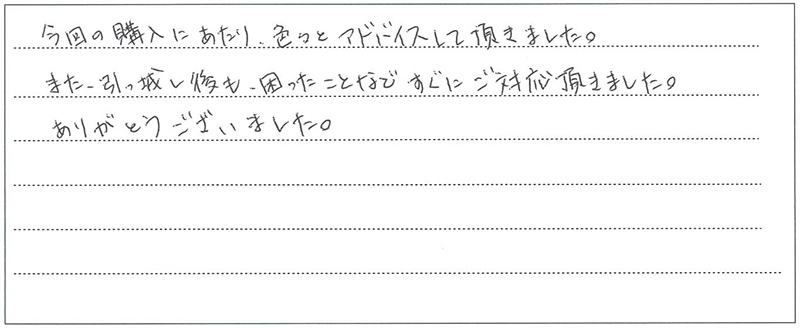 今回の購入にあたり、色々とアドバイスして頂きました。
また、引っ越し後も、困ったことなどすぐにご対応頂きました。
ありがとうございました。